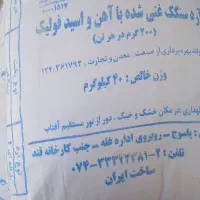 ۱۰۰۰۱۵۲۴
اره سنگک غنی شده با آهن و اسید فولیک
(۲۰۰ گرم در هر تن)
بهره‌برداری از صنعت معدن و تجارت: ۱۲۴,۳۶۱۷۹۲
وزن خالص: ۴۰ کیلوگرم
نگهداری: در مکان خشک و خنک، دور از نور مستقیم آفتاب
: یاسوج - روبروی اداره غله - جنب کارخانه قند
تلفن: ۴-
۰۷۴-۳۳۳۴۲۳۸۱
ساخت ایران